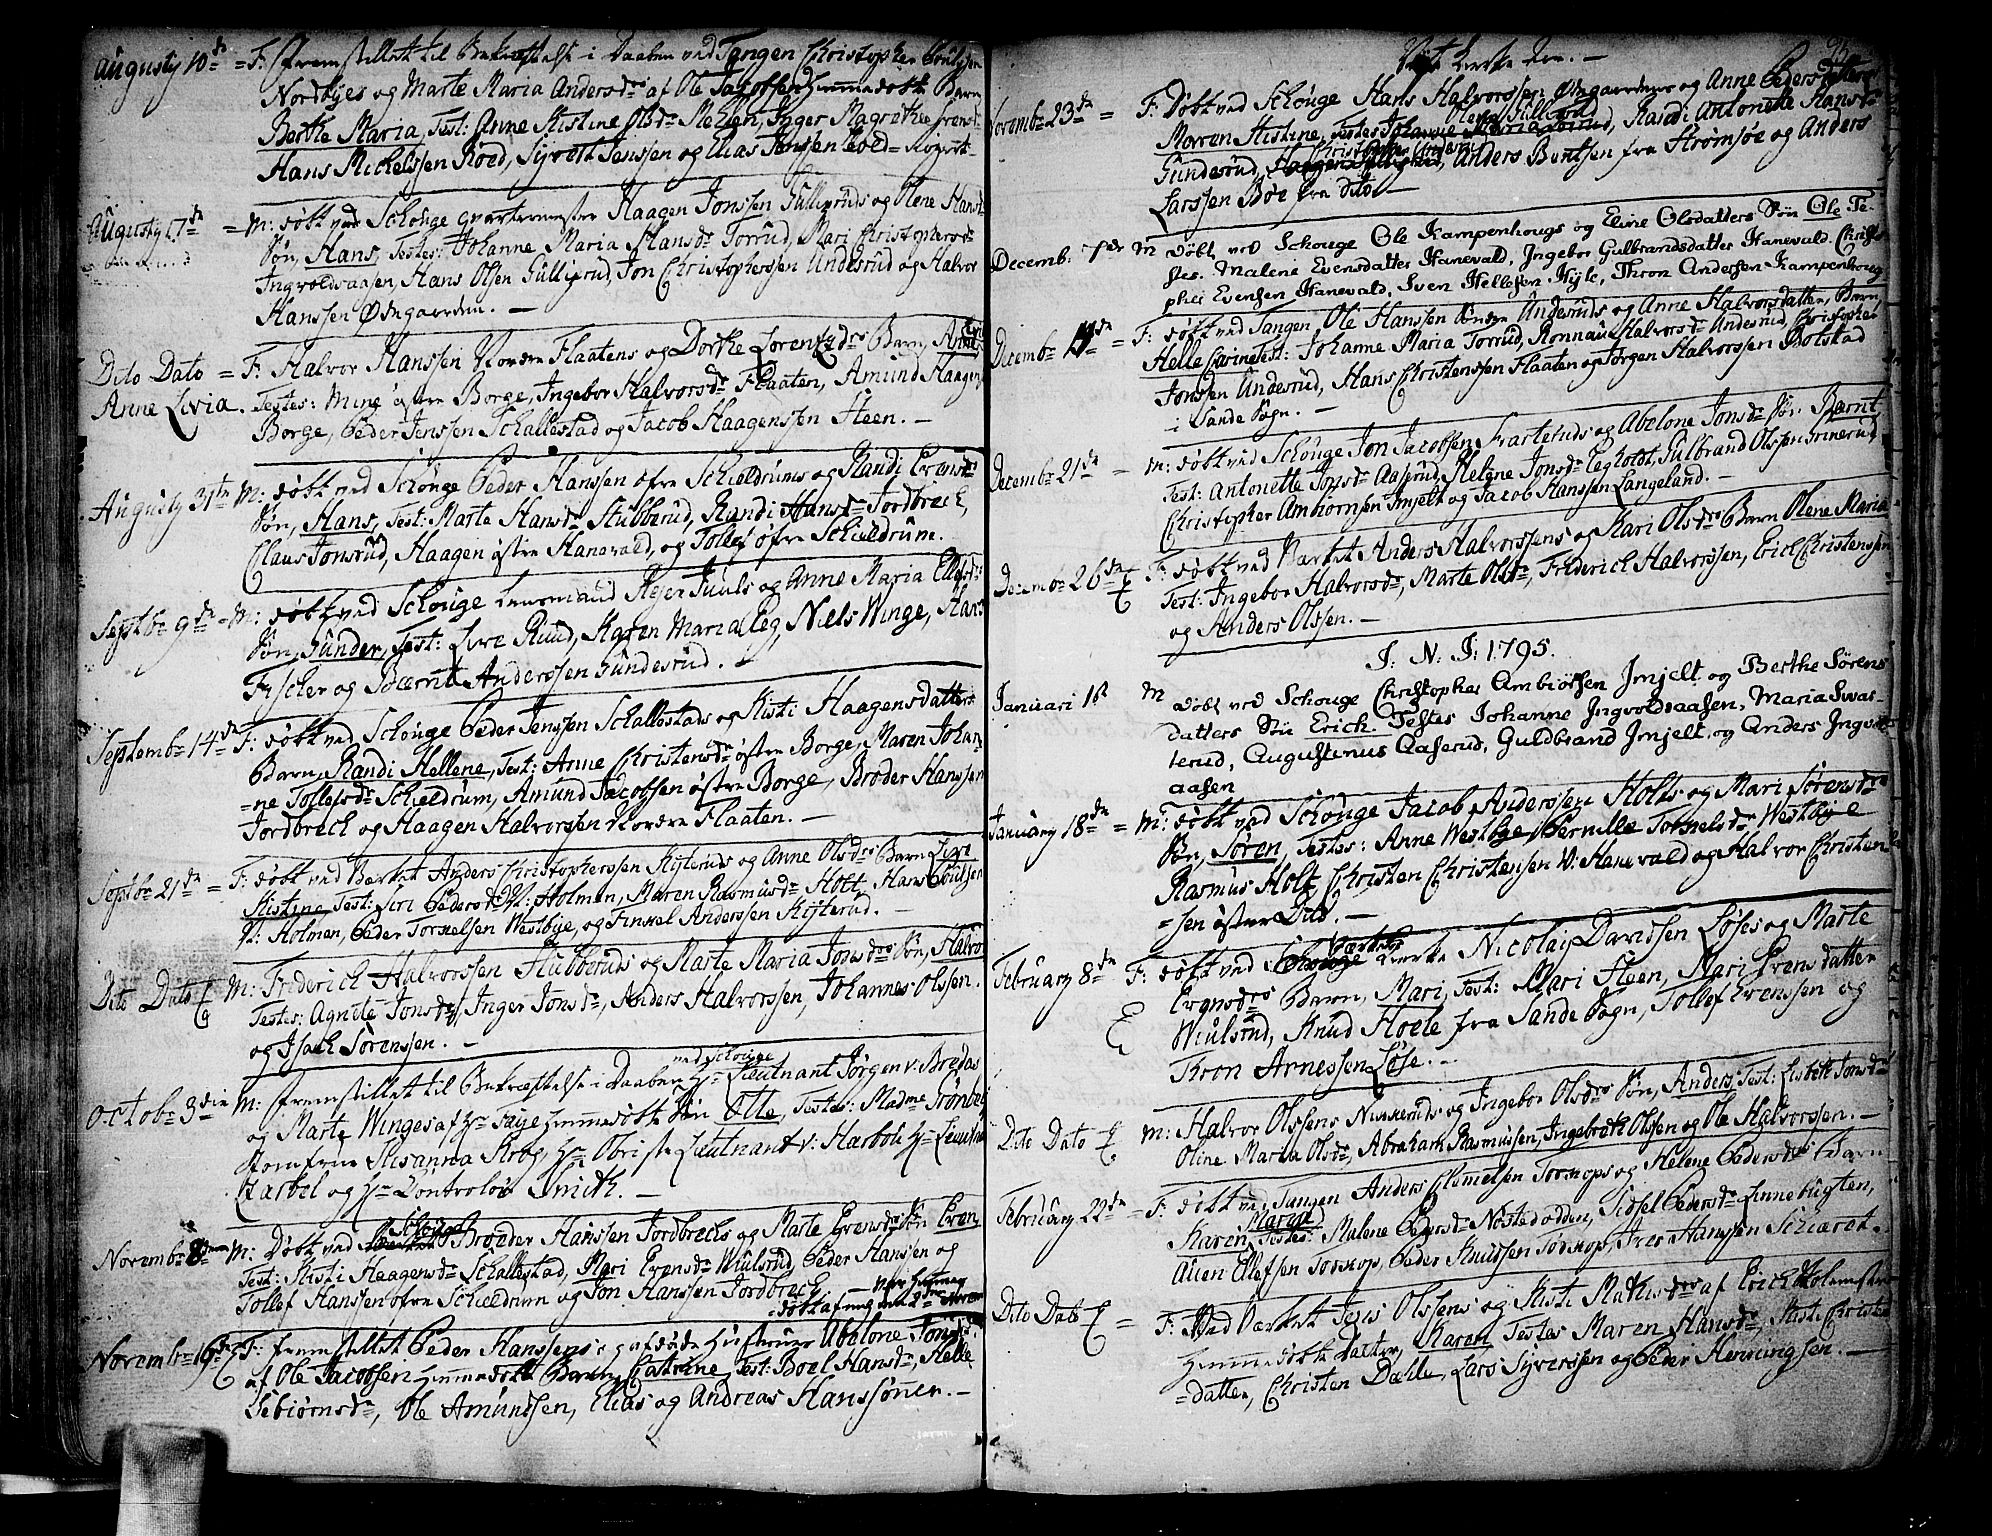 Augusty 10de = F: fremstillet til Bekræftelse i Daaben ved Tangen Christopher Poulsen
Nordbyes og Marte Maria Andersdr af Ole Jacobsen hiemmedøbt Barn
Berthe Maria, Test: Anne Kistine Olsdr Mehlen, Inger Magrethe
Hans Michelssen Roed, Syvert Jenssen og Elias Jenssen
Augusty 17de = M: døbt ved Schouge Haagen Jonssen Gulliruds og Olene Hansdr
Søn, Hans, Testes: Johanne Maria Hansdr Torrud, Mari Christophersdr
Ingvoldsaasen, Hans Olsen Gullirud, Jon Christopherssen Underud og Halvor
Hanssen Ødegaarden. —
Dito Dato = F: Halvor Hanssen Nordre Flaatens og Dorthe Lorentzdrs Barn, Anne
Anne Livia. Testes: østre Borge, Ingebor Halvorsdr Flaaten, Amund Haagens
Borge, Peder Jenssen Schallestad og Jacob Haagenssen Steen. —
Augusty 31te M: døbt ved Schouge Peder Hanssen øfre Schieldrums og Randi Evensdr
Søn, Hans, Test: Marte Hansdr Stubberud, Randi Hansdr Jordbrech,
Claus Jonsrud, Haagen østre Hanevald, og Tollef øfre Schieldrum.
Septbr 9de = M: døbt ved Schouge Lensmand Rejer Juuls og Anne Maria Ellefsdr
Søn, Gunder, Test: Live Ruud, Karen Maria Peg, Niels Winge, Hans
Fischer og Bærnt Anderssen Gundesrud.
Septembr 14de F: døbt ved Schouge Peder Jenssen Schallestads og Kisti Haagensdatters
Barn, Randi Hellene, Test: Anne Christensdr østre Borge, Maren Johan-
=ne Tollefsdr Schieldrum, Amund Jacobsen østre Borge, Broder Hanssen
Jordbrech og Haagen Halvorssen Nordre Flaaten. —
Septbr 21de = F: døbt ved Værket Anders Christopherssen Kisteruds og Anne Olsdrs Barn Live
Kistine, Test: Siri Pedersdr N: Holmen, Maren Rasmusdr Holt, Hans Poulsen
N: Holmen, Peder Torkelsen Westbye, og Finkel Anderssen Kisterud. —
Dito Dato M: Frederich Halvorssen Stubberuds og Marte Maria Jonsdrs Søn, Halvor
Testes: Agnete Jonsdr, Inger Jonsdr, Anders Halvorssen, Johannes Olssen.
og Isach Sørenssen. —
ved Schouge
Octobr 3die M: fremstillet til Bekræftelse i Daaben Hr Lieutnant Jørgen v: Bredas
og Marte Winges af Hr Faye hiemmedøbt Søn Otte, Testes: Madme
Jomfrue Susanna Krog, Hr Obriste Lieutnant v: Harboe Hr Lieutnant
Harbel og Hr Controlør Smith. —
Schouge
Novembr 8de M: Døbt ved Broeder Hanssen Jordbrechs og Marte Evensdrs Søn Even
Test: Kisti Haagensdr Schallestad, Mari Evensdr Wiulsrud, Peder Hanssen og
Tollef Hanssen øfre Schieldrum og Jon Hanssen Jordbrech —
Novembr 16de F: fremstillet Peder Hanssens og afdøde Hustrues Abelone Jonsdr
af Ole Jacobssen hiemmedøbt Barn, Cathrine, Test: Boel Hansdr, Helle
Tebiørnsdr, Ole Amundssen, Elias og Andreas Hanssønner. —
95
Novembr 23de = F: Døbt ved Schouge Hans Halvorssen Ødegaardens og Anne Pedersdatters
Maren Kistine, Testes Johanne Maria Torrud, Randi Antonette Hansdr
Gundesrud, Anders Berntsen fra Strømsøe og Anders
Larssen Bøe fra dito —
Decemb: 7de M døbt ved Schouge Ole Kampenhougs og Eline Olsdatters Søn Ole. Te-
stes. Malene Evensdatter Hanevald, Ingebor Gulbrandsdatter Hanevald. Christo-
pher Evensen Hanevald, Sven Hellesen Hyle, Thron Andersen Kampenhoug
Decembr 14de = F: døbt ved Tangen, Ole Hanssen Søndre Underuds og Anne Halvorsdatter, Barn,
Helle Carine Test: Johanne Maria Torrud, Ronnau Halvorsdr Underud, Christopher
Jonssen Underud, Hans Christenssen Flaaten og Jørgen Halvorssen Bolstad
i Sande Sogn. —
Decembr 21de = M: døbt ved Schouge Jon Jacobssen Frarteruds og Abelone Jonsdr Søn. Bærnt
Test: Antonette Jonsdr Aaserud, Helene Jonsdr Egholdt, Gulbrand Olssen Grinerud,
Christopher Ambiørnsen Imjelt og Jacob Hanssen Langeland. —
Decembr 26de F: døbt ved Værket Anders Halvorssens og Kari Olsdrs Barn Olene Maria
Test: Ingebor Halvorsdr, Marte Olsdr, Friderich Halvorssen, Erich Christenssen
og Anders Olssen. —
J: N: J: 1795.
Januari 1st M døbt ved Schouge Christopher Ambiørsen Imjelt og Berthe Sørens
datters Søn Erich. Testes Johanne Ingvoldsaasen, Maria Swar-
terud, Augustinus Aaserud, Guldbrand Imjelt, og Anders Ingvolds
aasen
January 18de = M: døbt ved Schouge Jacob Anderssen Holts og Mari Sørensdrs
Søn, Søren, Testes: Anne Westbye, Pernille Torkelsdr Westbye
Rasmus Holt, Christen Christensen V: Hanevald og Halvor Christen
=sen østre Dito. —
Værkets
February 8de F: døbt ved Kierke Nicolay Davidsen Løses og Marte
Evensdrs Barn, Mari, Test: Mari Steen, Mari Evensdatter
Wiulsrud, Knud Hoele fra Sande Sogn, Tollef Evenssen og
Thron Arnessen Løse. —
Dito Dato M: Halvor Olssens Nukkeruds og Ingebor Olsdrs Søn, Anders, Test: Lisbeth Jonsdr
Oline Maria Olsdr, Abraham Rasmussen, Ingebreth Olssen og Ole Halvorssen. —
February 22de = F: døbt ved Tangen Anders Clemetsen Torskops og Helene Pedersdrs Barn
Karen Maria, Testes: Malene Pedersdr Nostedodden, Sidsel Pedersdr Linnebugten,
Auen Olefsen Torskop, Peder Knudssen Torskop, Iver Hanssen Schiaret.
Dito Dato = F: Ved Værket Jens Olssens og Kisti Mathisdrs af Erich Holmestrand
hiemmedøbt Datter, Karen, Testes Maren Hansdr, Kisti Christens
=datter, Christen Dæhle, Lars Syverssen og Peder Henningsen. —